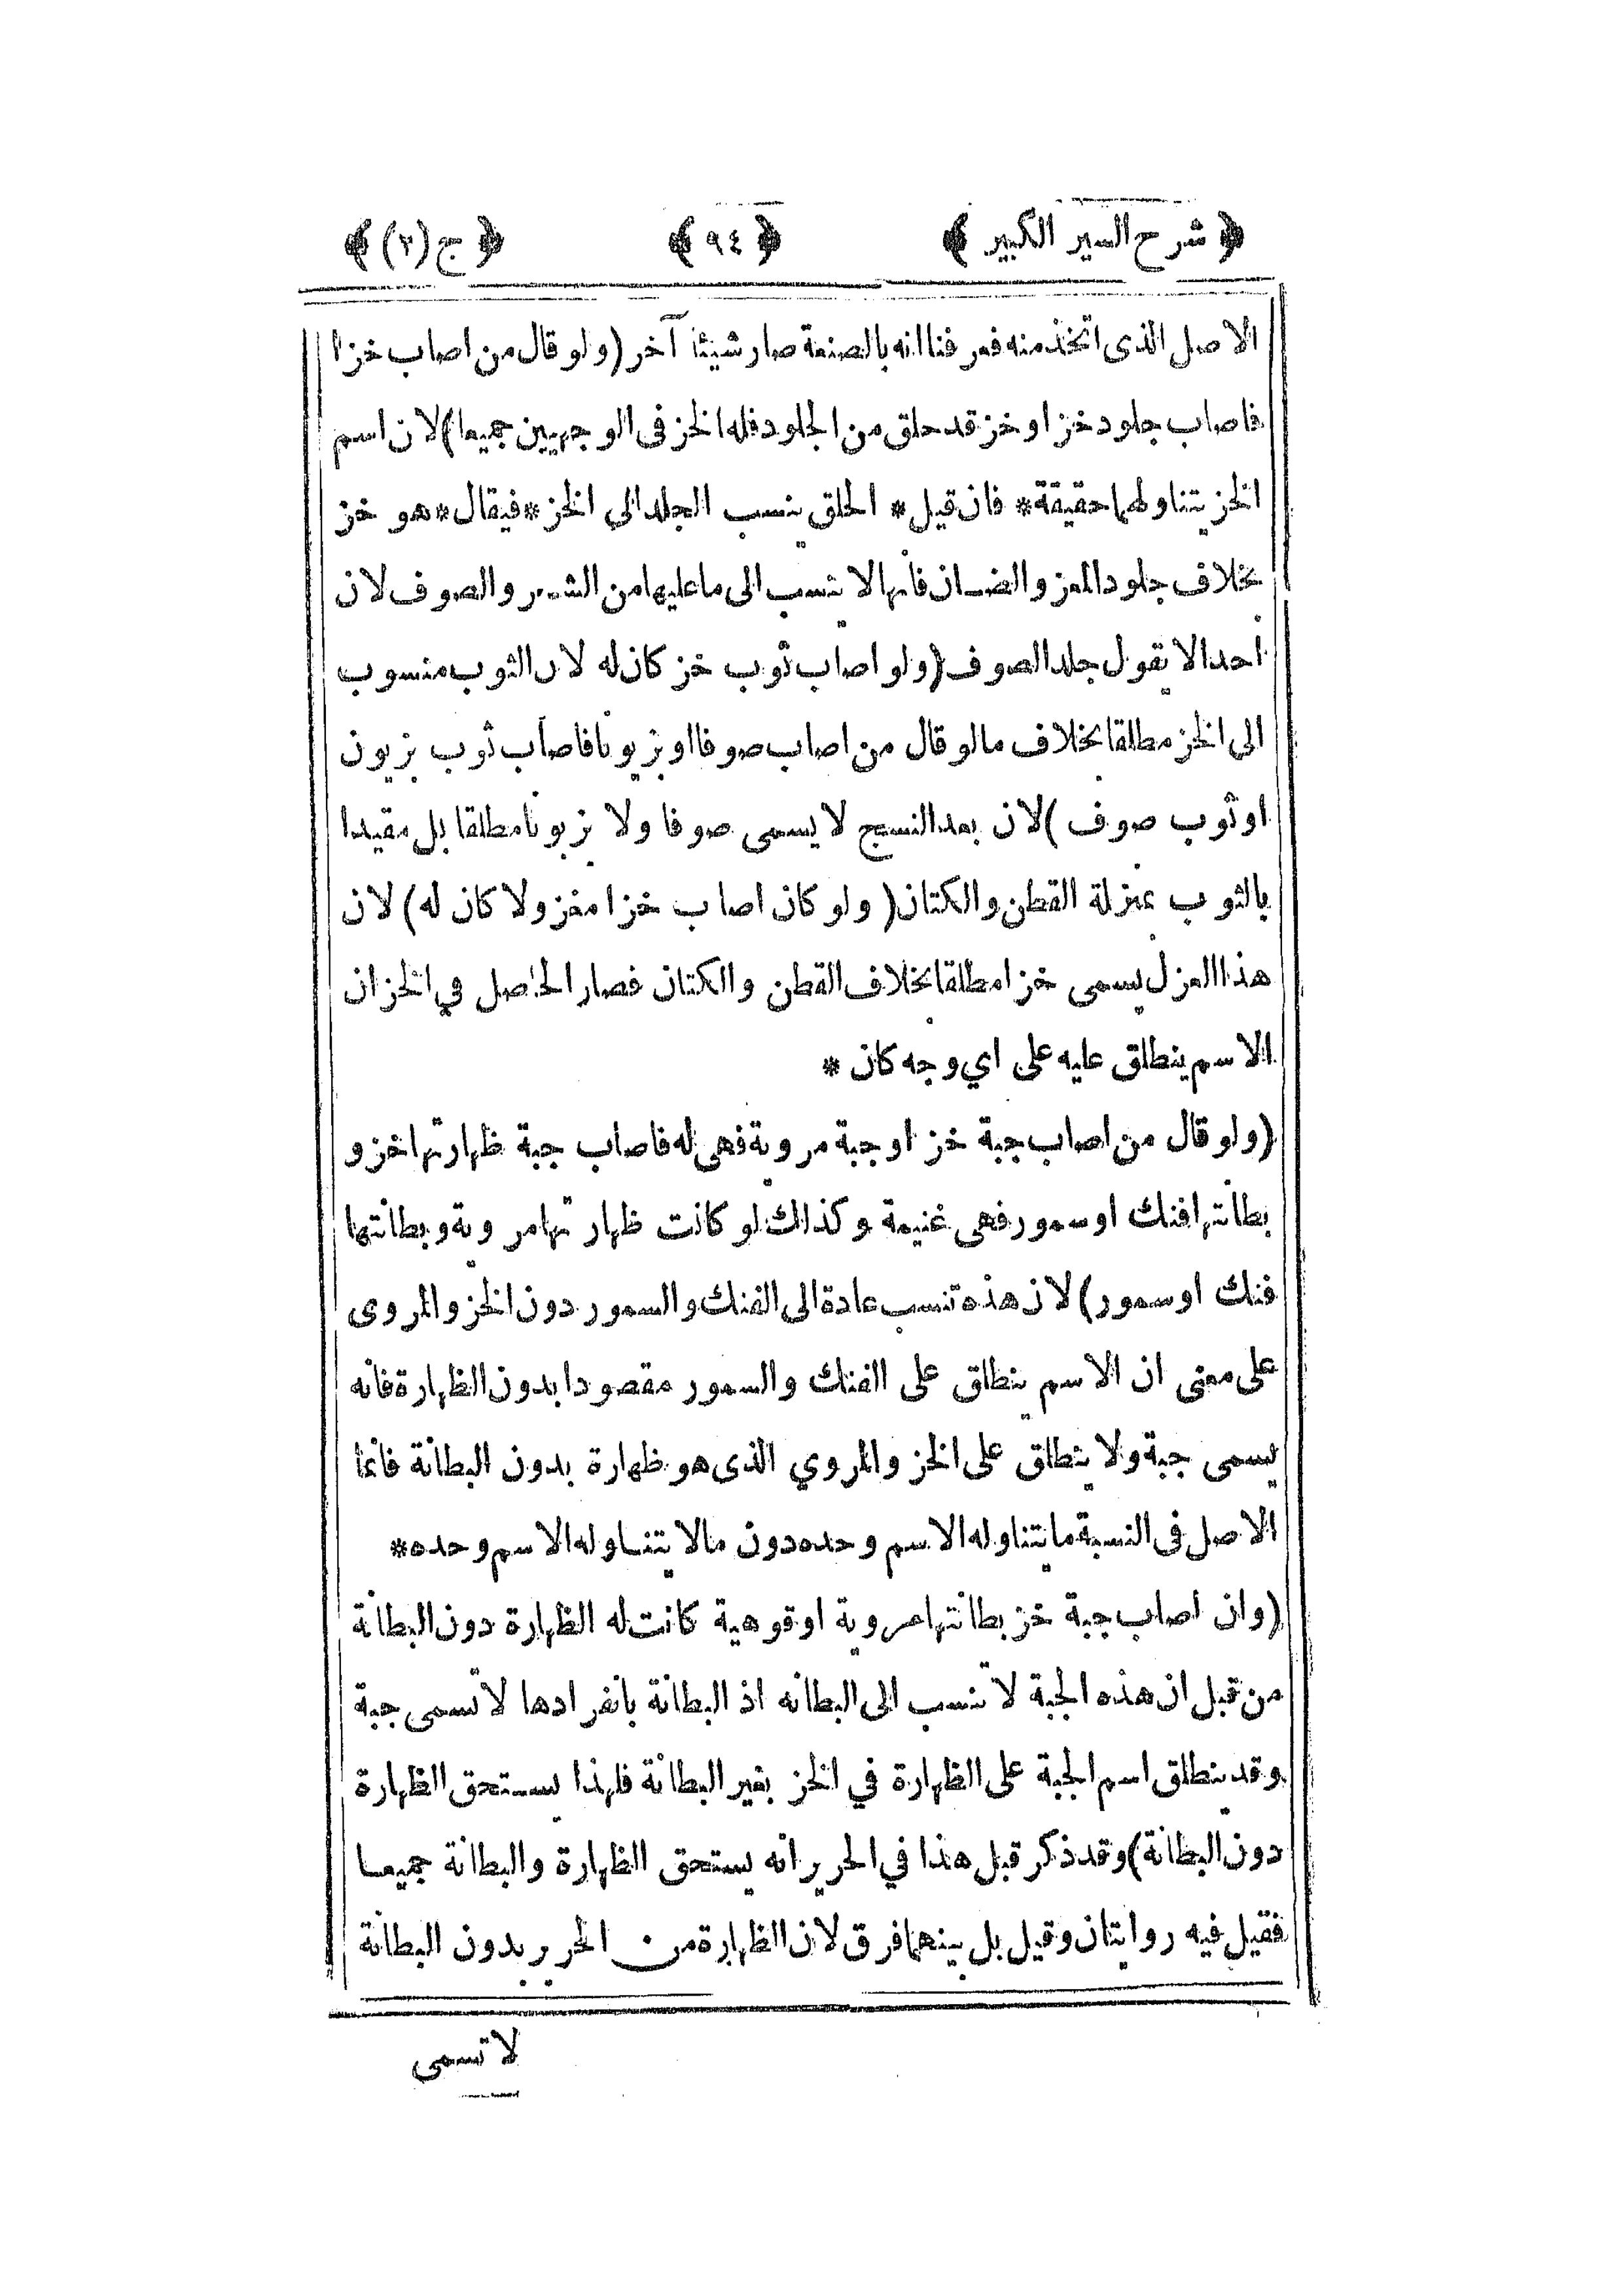 ﴿ شرح السير الكبير ﴾ ﴿ ٩٤ ﴾ ﴿ ج (٢) ﴾
الاصل الذى اتخذ منه فعرفنا انه بالصنعة صار شيئا آخر (ولو قال من اصاب خزا
فاصاب جلود خز او خز قد حلق من الجلود فله الخز فى الوجهين جميعا) لان اسم
الخز يتناولهما حقيقة * فان قيل * الحلق ينسب الجلد الي الخز * فيقال * هو خز
بخلاف جلود المعز والضان فانها لا تنسب الى ما عليها من الشعر والصوف لان
احدا لا يقول جلد الصوف (ولو اصاب ثوب خز كان له لان الثوب منسوب
الى الخز مطلقا بخلاف ما لو قال من اصاب صوفا او بزيونا فاصاب ثوب بزيون
او ثوب صوف ) لان بعد النسج لا يسمى صوفا ولا بزيونا مطلقا بل مقيدا
بالثوب بمنزلة القطن والكتان ( ولو كان اصاب خزا مغزولا كان له) لان
هذا الغزل يسمى خزا مطلقا بخلاف القطن والكتان فصار الحاصل في الخز ان
الاسم ينطلق عليه على اي وجه كان *
(ولو قال من اصاب جبة خز او جبة مروية فهى له فاصاب جبة ظهارتها خز و
بطانتها فنك او سمور فهى غنيمة وكذلك لو كانت ظهارتها مروية وبطانتها
فنك او سمور) لان هذه تنسب عادة الى الفنك والسمور دون الخز والمروى
على معنى ان الاسم ينطلق على الفنك والسمور مقصودا بدون الظهارة فانه
يسمى جبة ولا ينطلق على الخز والمروي الذى هو ظهارة بدون البطانة فانما
الاصل فى النسبة ما يتناوله الاسم وحده دون ما لا يتناوله الاسم وحده *
(وان اصاب جبة خز بطانتها مروية او قوهية كانت له الظهارة دون البطانة
من قبل ان هذه الجبة لا تنسب الى البطانه اذ البطانة بانفرادها لا تسمى جبة
وقد ينطلق اسم الجبة على الظهارة في الخز بغير البطانة فلهذا يستحق الظهارة
دون البطانة) وقد ذكر قبل هذا في الحرير انه يستحق الظهارة والبطانة جميعا
فقيل فيه روايتان وقيل بل بينهما فرق لان الظهارة من الحرير بدون البطانة
لا تسمى